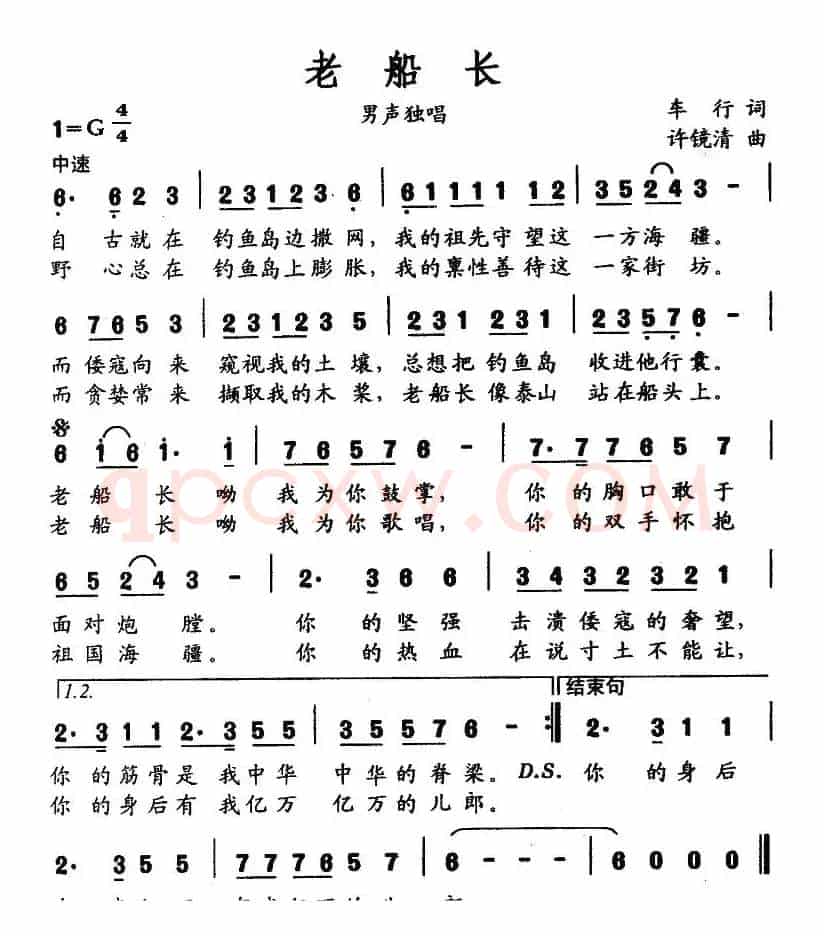 老船长
男声独唱
车行 词
1=G 4/4
许镜清 曲
中速
6· 6 2 3 | 2 3 1 2 3 6 | 6 1 1 1 1 1 2 | 3 5 2 4 3 - |
自古就在 钓鱼岛边撒网，我的祖先守望这 一方海疆。
野心总在 钓鱼岛上膨胀，我的禀性善待这 一家街坊。
6 7 6 5 3 | 2 3 1 2 3 5 | 2 3 1 2 3 1 | 2 3 5 7 6 - |
而倭寇向来 窥视我的土壤，总想把钓鱼岛 收进他行囊。
而贪婪常来 撷取我的木桨，老船长像泰山 站在船头上。
6 1 6 1· 1 | 7 6 5 7 6 - | 7· 7 7 6 5 7 |
老船长呦 我为你鼓掌， 你的胸口敢于
老船长呦 我为你歌唱， 你的双手怀抱
6 5 2 4 3 - | 2· 3 6 6 | 3 4 3 2 3 2 1 |
面对炮膛。 你的坚强 击溃倭寇的奢望，
祖国海疆。 你的热血 在说寸土不能让，
1.2. 结束句
2· 3 1 1 2· 3 5 5 | 3 5 5 7 6 - :‖ 2· 3 1 1 |
你的筋骨是我中华 中华的脊梁。D.S. 你的身后
你的身后有我亿万 亿万的儿郎。
2· 3 5 5 | 7 7 7 6 5 7 | 6 - - - | 6 0 0 0 ‖
qpcxw.COM